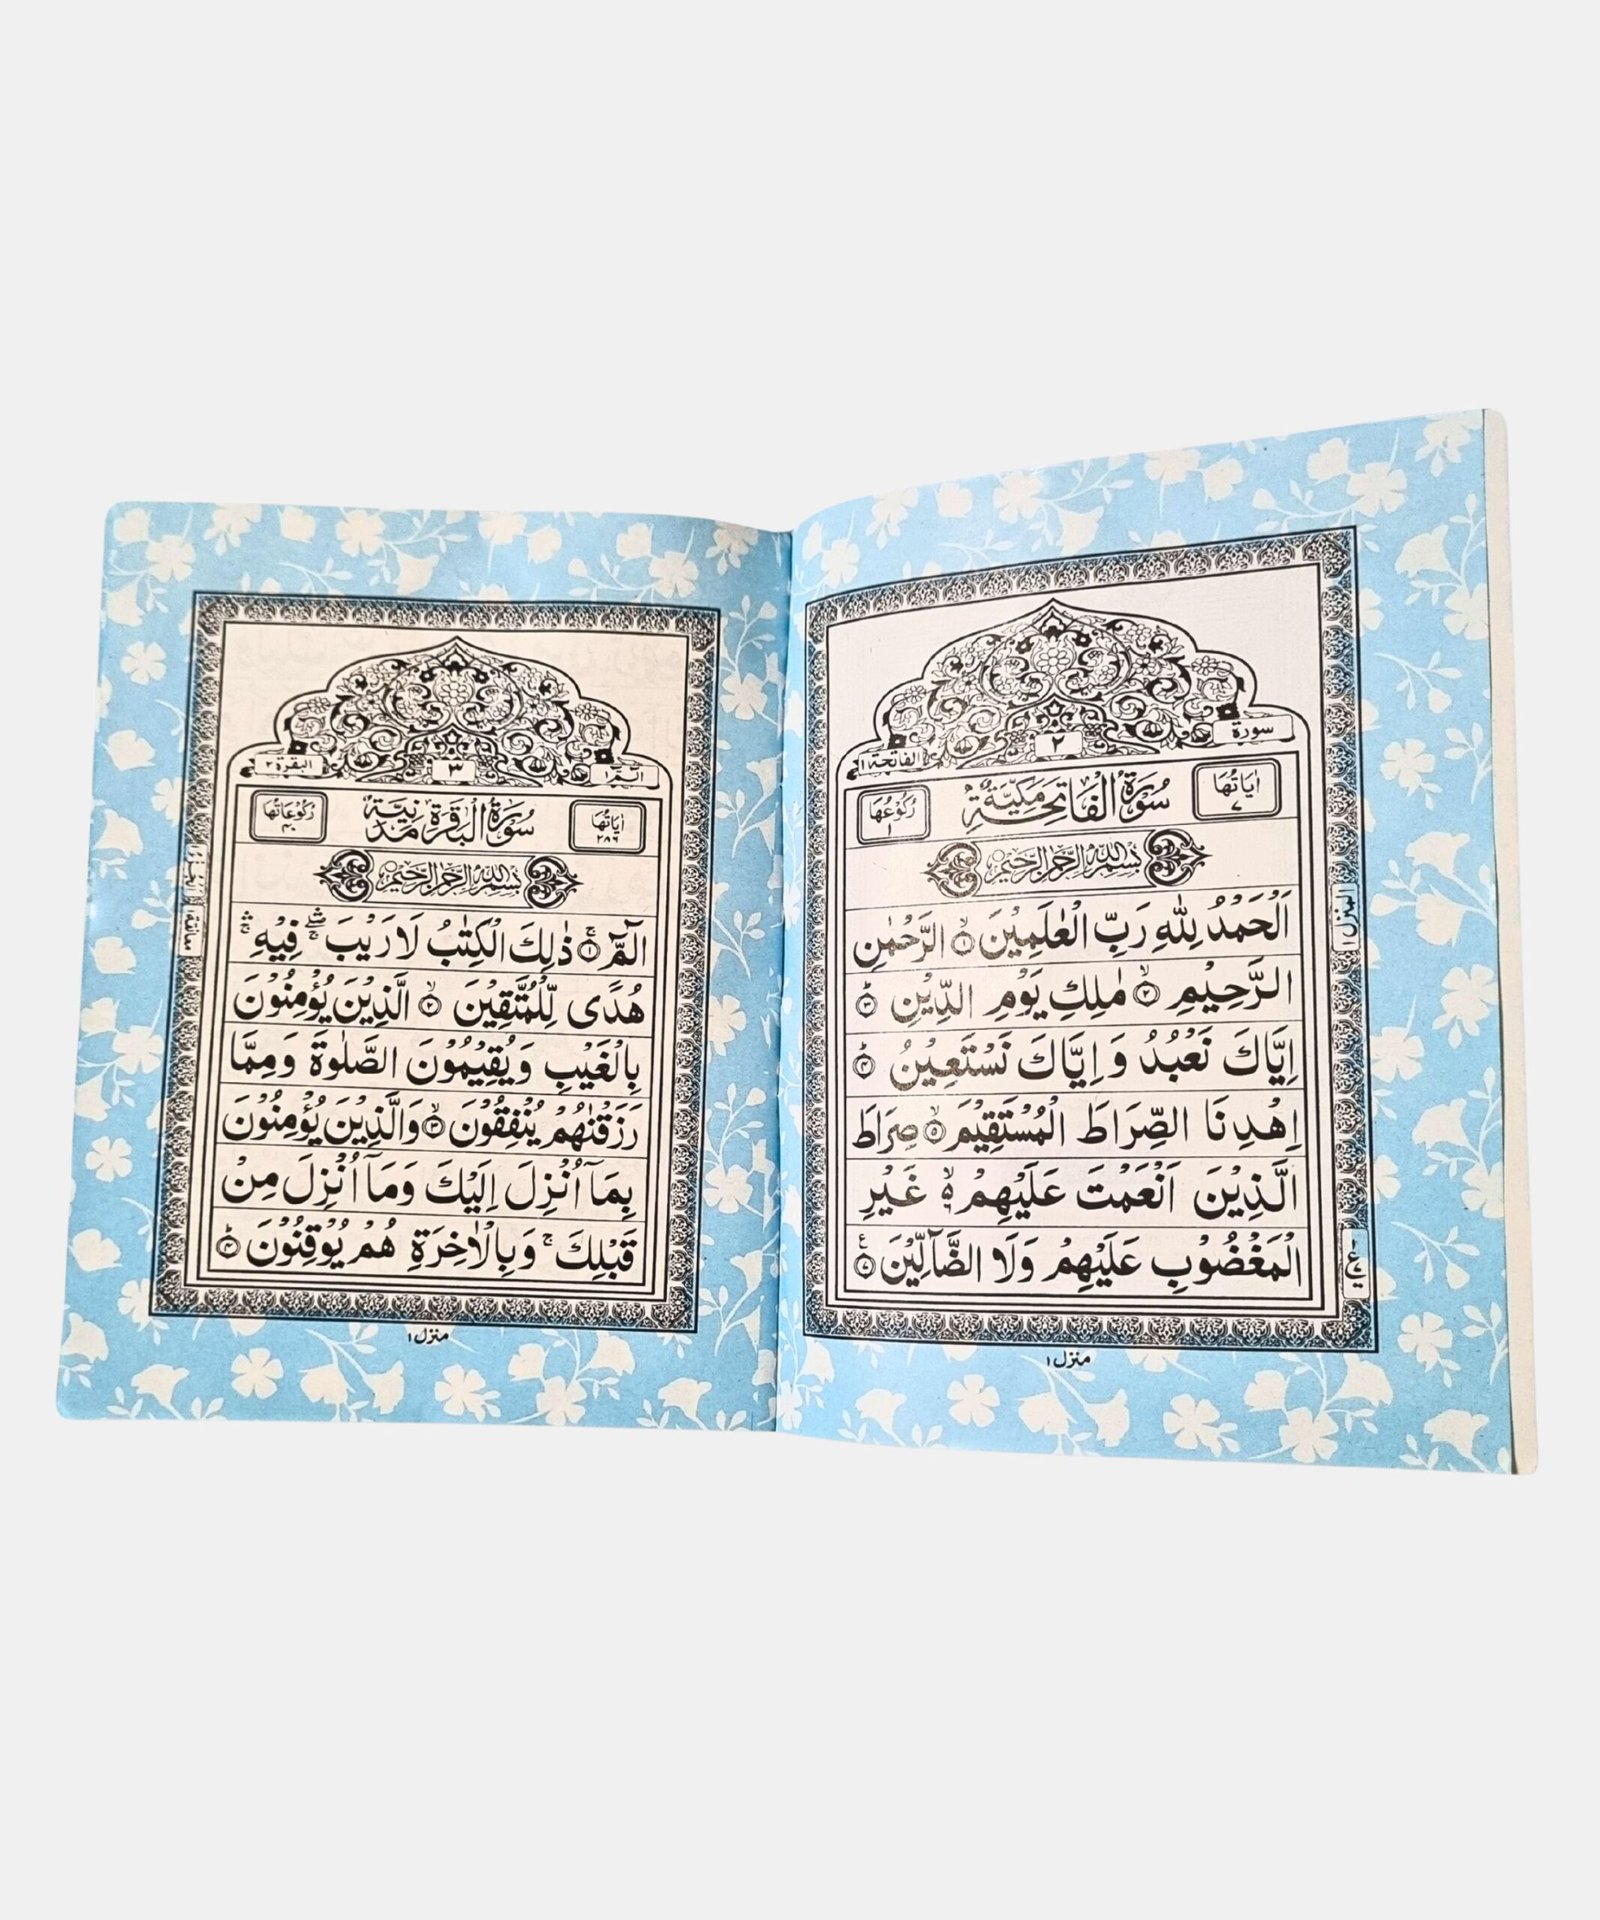 سورة
٢
الفاتحة ١
اٰيَاتُهَا ٧
سُوْرَةُ الْفَاتِحَةِ مَكِّيَّةٌ
رُكُوْعُهَا ١
بِسْمِ اللّٰهِ الرَّحْمٰنِ الرَّحِيْمِ
اَلْحَمْدُ لِلّٰهِ رَبِّ الْعٰلَمِيْنَ ۙ﴿١﴾ الرَّحْمٰنِ
الرَّحِيْمِ ۙ﴿٢﴾ مٰلِكِ يَوْمِ الدِّيْنِ ؕ﴿٣﴾
اِيَّاكَ نَعْبُدُ وَ اِيَّاكَ نَسْتَعِيْنُ ؕ﴿٤﴾
اِهْدِنَا الصِّرَاطَ الْمُسْتَقِيْمَ ۙ﴿٥﴾ صِرَاطَ
الَّذِيْنَ اَنْعَمْتَ عَلَيْهِمْ ۙ۬ۦ غَيْرِ
الْمَغْضُوْبِ عَلَيْهِمْ وَلَا الضَّآلِّيْنَ ﴿٧﴾
المنزل ١
منزل ١
الٓمّٓ ١
٣
البقرة ٢
اٰيَاتُهَا ٢٨٦
سُوْرَةُ الْبَقَرَةِ مَدَنِيَّةٌ
رُكُوْعَاتُهَا ٤٠
بِسْمِ اللّٰهِ الرَّحْمٰنِ الرَّحِيْمِ
الٓمّٓ ۚ﴿١﴾ ذٰلِكَ الْكِتٰبُ لَا رَيْبَ ۛۖۚ فِيْهِ ۛۚ
هُدًى لِّلْمُتَّقِيْنَ ۙ﴿٢﴾ الَّذِيْنَ يُؤْمِنُوْنَ
بِالْغَيْبِ وَيُقِيْمُوْنَ الصَّلٰوةَ وَمِمَّا
رَزَقْنٰهُمْ يُنْفِقُوْنَ ۙ﴿٣﴾ وَالَّذِيْنَ يُؤْمِنُوْنَ
بِمَآ اُنْزِلَ اِلَيْكَ وَمَآ اُنْزِلَ مِنْ
قَبْلِكَ ۚ وَبِالْاٰخِرَةِ هُمْ يُوْقِنُوْنَ ؕ﴿٤﴾
معانقة ١
منزل ١